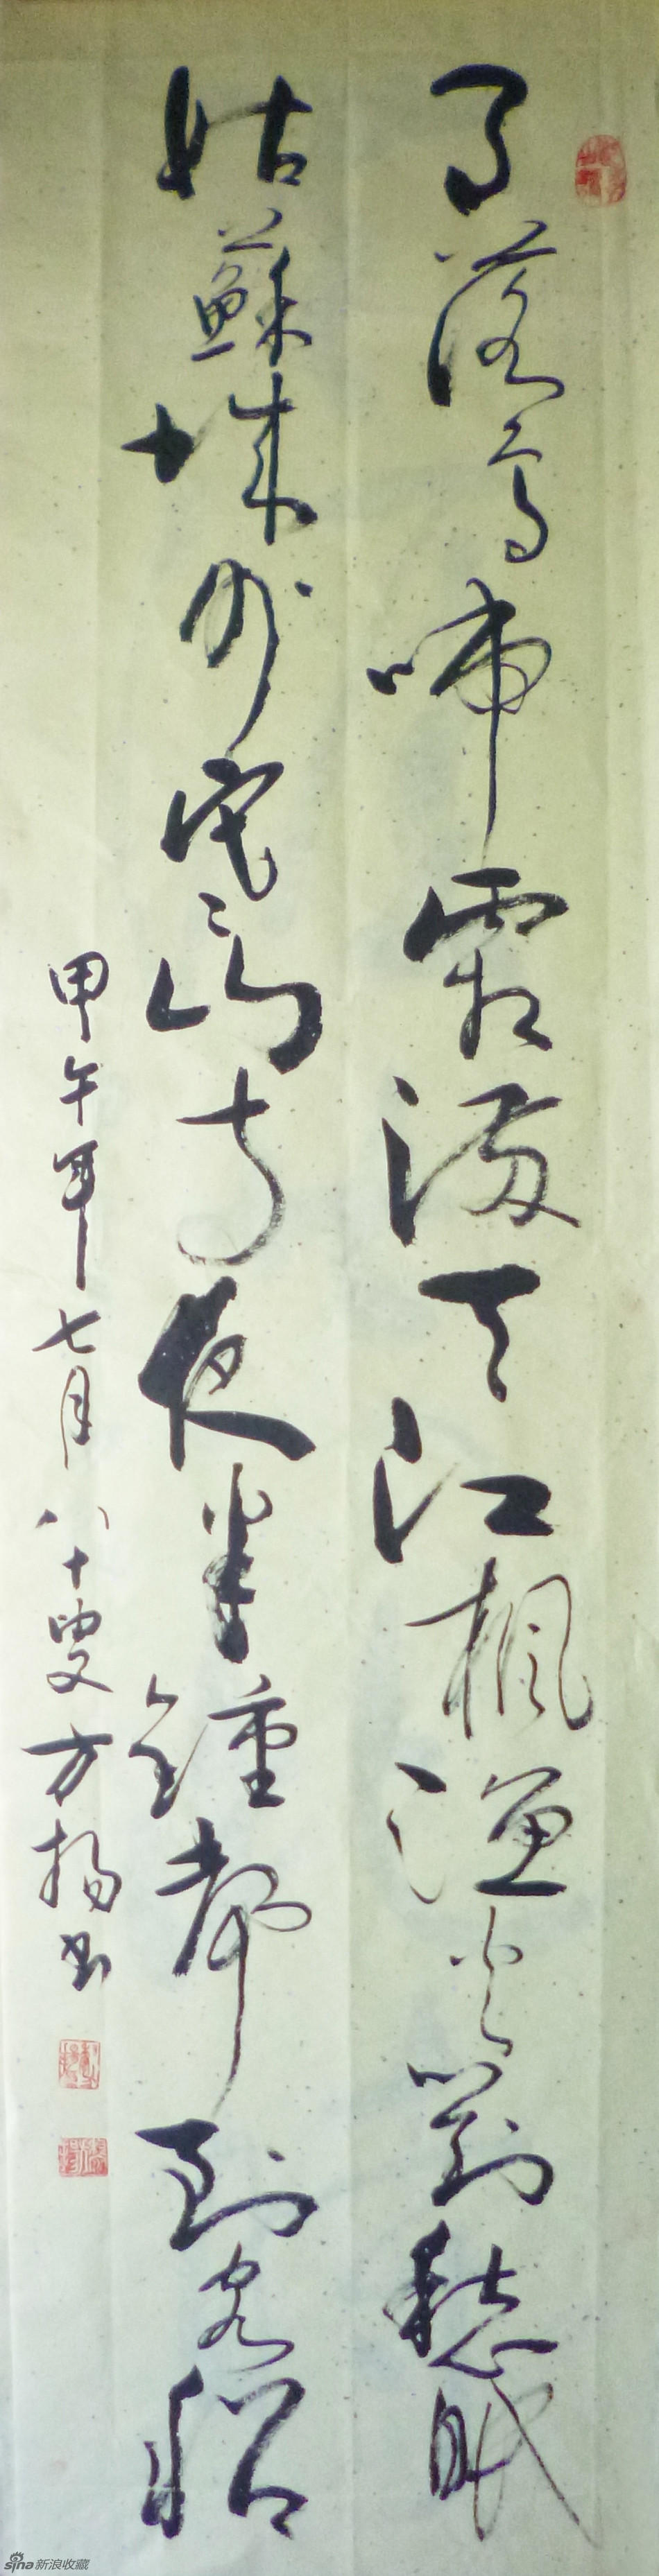 月落烏啼霜滿天江楓漁火對愁眠
姑蘇城外寒山寺夜半鐘聲到客船
甲午年七月八十叟方揚书
sina新浪收藏